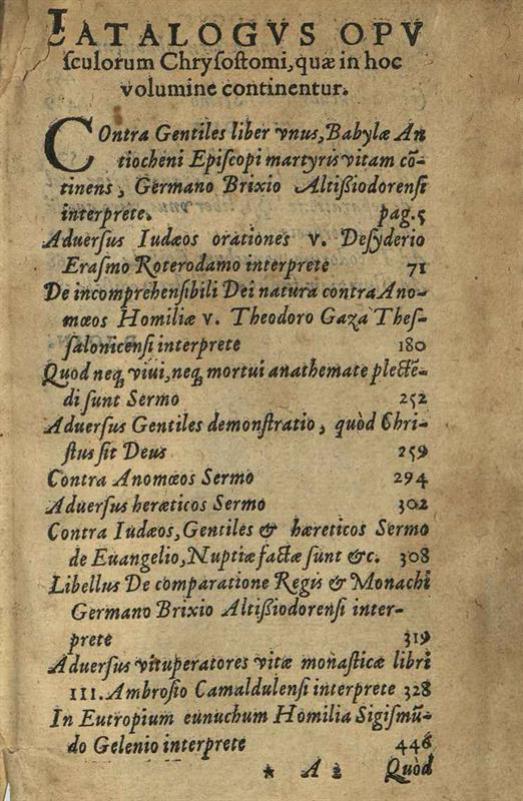 CATALOGVS OPV
sculorum Chrysostomi, quæ in hoc
volumine continentur.
COntra Gentiles liber vnus, Babylæ An
tiocheni Episcopi martyris vitam cō-
tinens, Germano Brixio Altißiodorensi
interprete. pag. 5
Aduersus Iudæos orationes v. Desyderio
Erasmo Roterodamo interprete 71
De incomprehensibili Dei natura contra Ano-
mœos Homiliæ v. Theodoro Gaza Thes-
salonicensi interprete 180
Quod neq; viui, neq; mortui anathemate plectē-
di sunt Sermo 252
Aduersus Gentiles demonstratio, quòd Chri-
stus sit Deus 259
Contra Anomœos Sermo 294
Aduersus heræticos Sermo 302
Contra Iudæos, Gentiles & hæreticos Sermo
de Euangelio, Nuptiæ factæ sunt &c. 308
Libellus De comparatione Regis & Monachi
Germano Brixio Altißiodorensi inter-
prete 319
Aduersus vituperatores vitæ monasticæ libri
III. Ambrosio Camaldulensi interprete 328
In Eutropium eunuchum Homilia Sigismū-
do Gelenio interprete 446
* A 2 Quòd